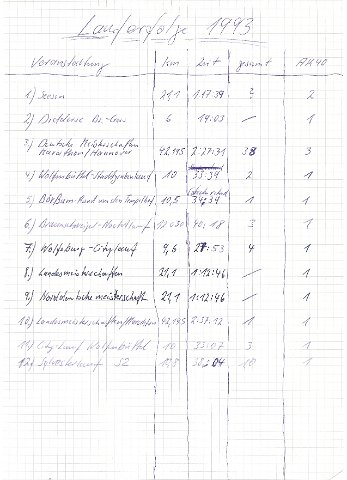 Lauferfolge 1993
Veranstaltung km Zeit gesamt AK40
1) Seesen 21,1 1:17:39 ? 2
2) 6 19:03 — 1
3) Deutsche Meisterschaften
Marathon/Hannover 42,195 2:37:31 38 3
4) Wolfenbüttel 10 33:39 2 1
5) Börßum-Rund um den 10,5 34:34 1 1
6) Braunschweiger 40:18 3 1
7) Wolfsburg-Citylauf 9,6 27:53 4 1
8.) Landesmeisterschaften 21,1 1:12:46 — 1
9.) Norddeutsche meisterschaft 21,1 1:12:46 — 1
10.) Landesmeisterschaften 42,195 2:37:12 1 1
11.) City-Lauf Wolfenbüttel 10 33:07 3 1
12.) Sylvesterlauf SZ 38:04 10 1